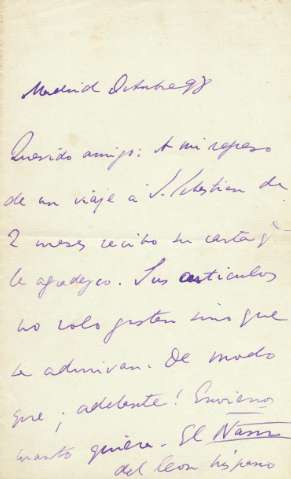 Madrid Octubre 98
Querido amigo: A mi regreso
de un viaje a S. Sebastian de
2 meses recibo su carta q
le agradezco. Sus articulos
no solo gustan sino que
se admiran. De modo
que ¡adelante! Envienos
cuanto quiera. El
del leon hispano